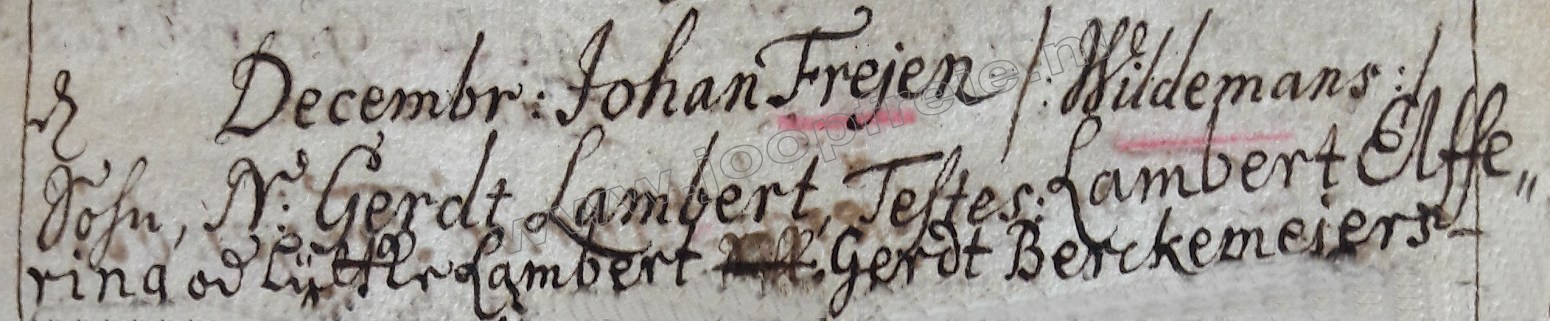 8 Decembr: Johan Frejen /: Wildemans :/
Sohn, N: Gerdt Lambert, Testes: Lambert Elffe„
ring od Lambert Gerdt Berckemejers
www.joopfreie.nl